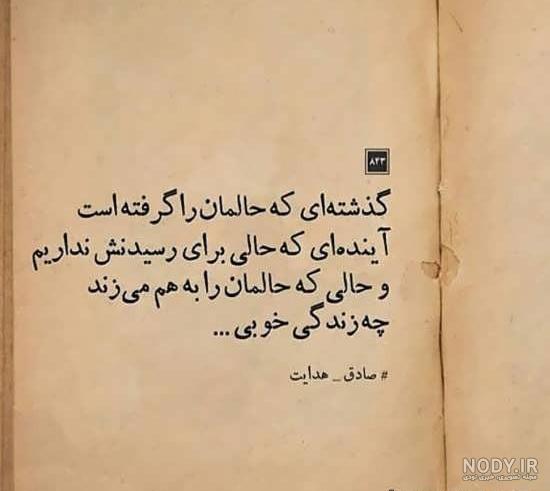 ۸۴۳
گذشته‌ای که حالمان را گرفته است
آینده‌ای که حالی برای رسیدنش نداریم
و حالی که حالمان را به هم می‌زند
چه زندگی خوبی ...
# صادق _ هدایت
NODY.IR
مجله تصویری، خبری نودی